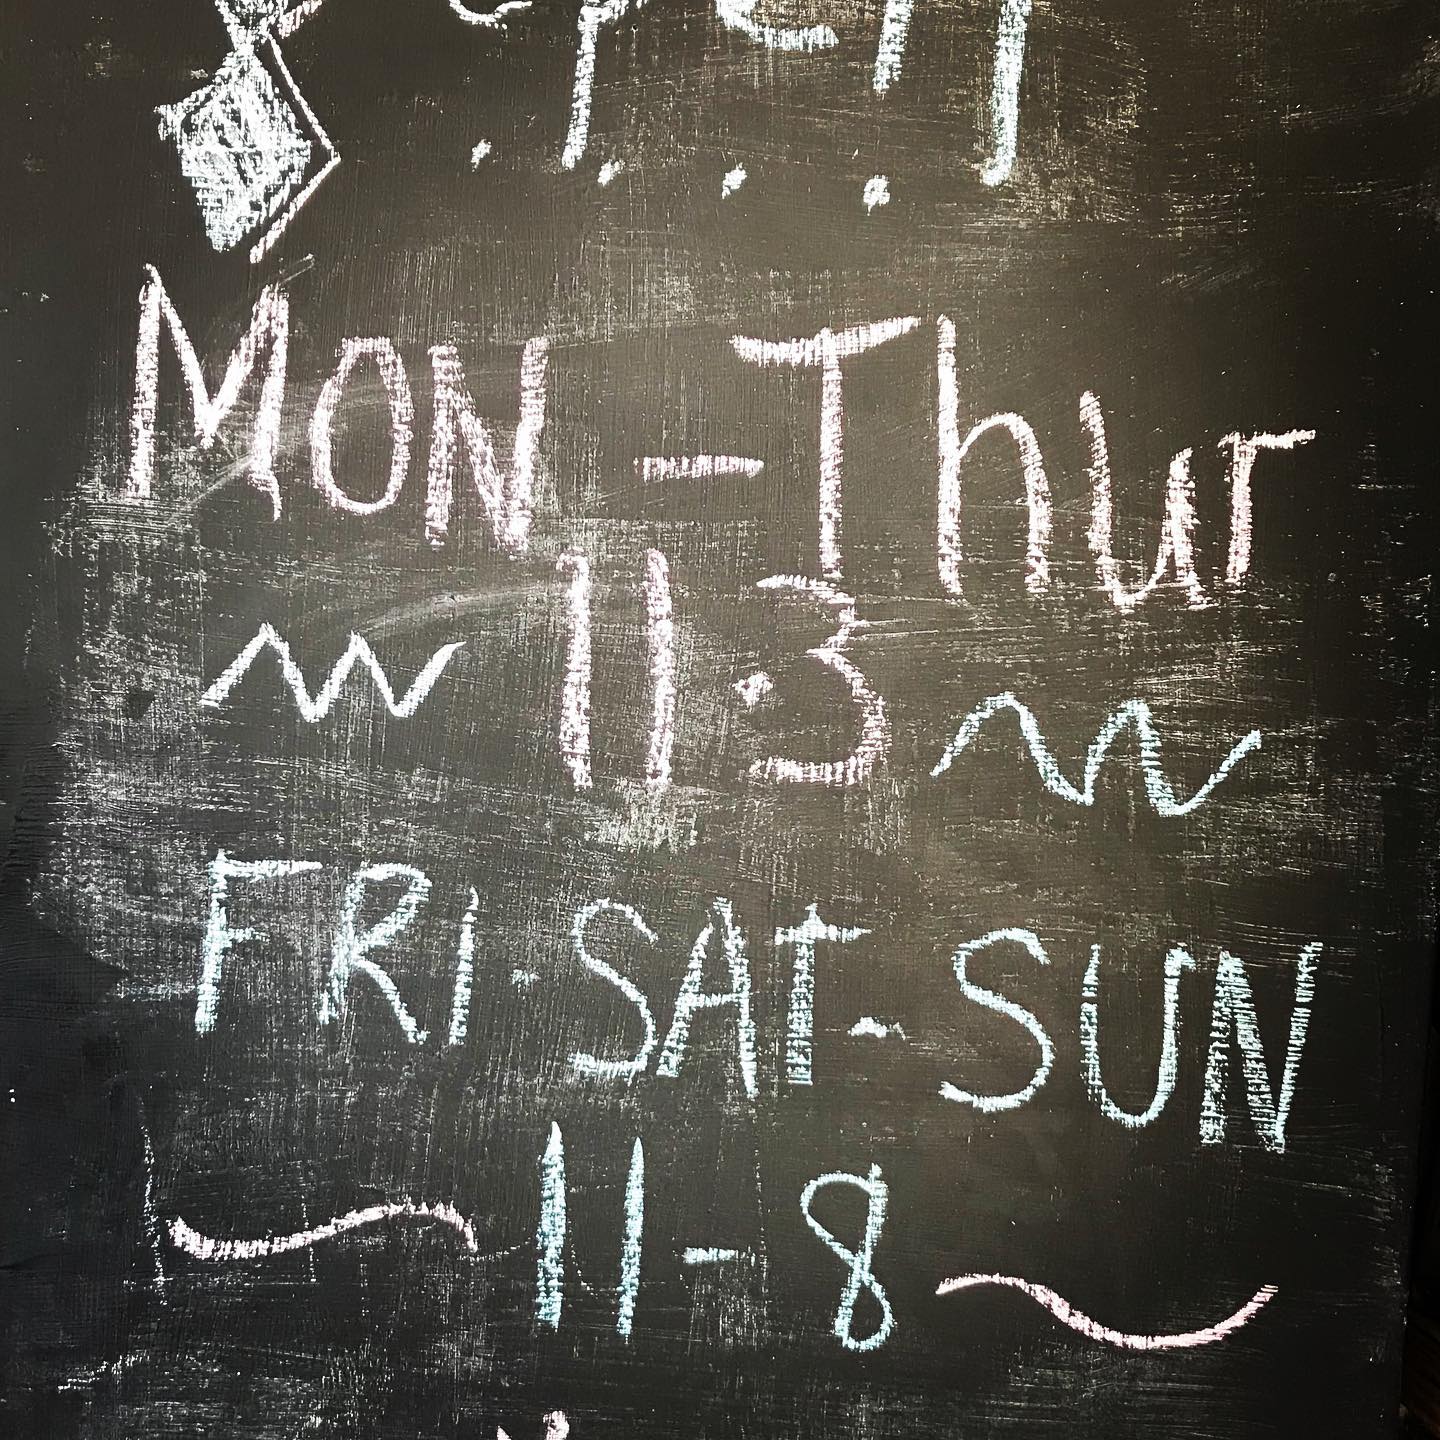 open
MON - Thur
11-3
FRI-SAT-SUN
11-8